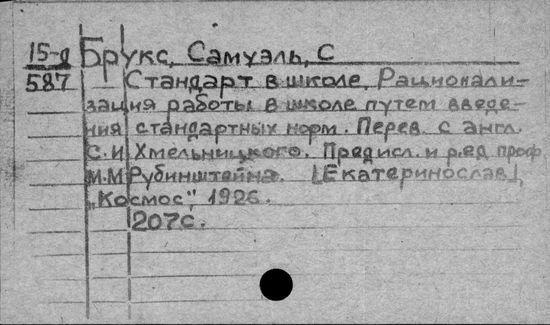 15-д Брукс, Самуэль, С
587 Стандарт в школе. Рационали-
зация работы в школе путем введе-
ния стандартных норм. Перев. с англ.
С.И. Хмельницкого. Предисл. и ред. проф.
М.М. Рубинштейна. [Екатеринослав],
„Космос", 1926.
207с.